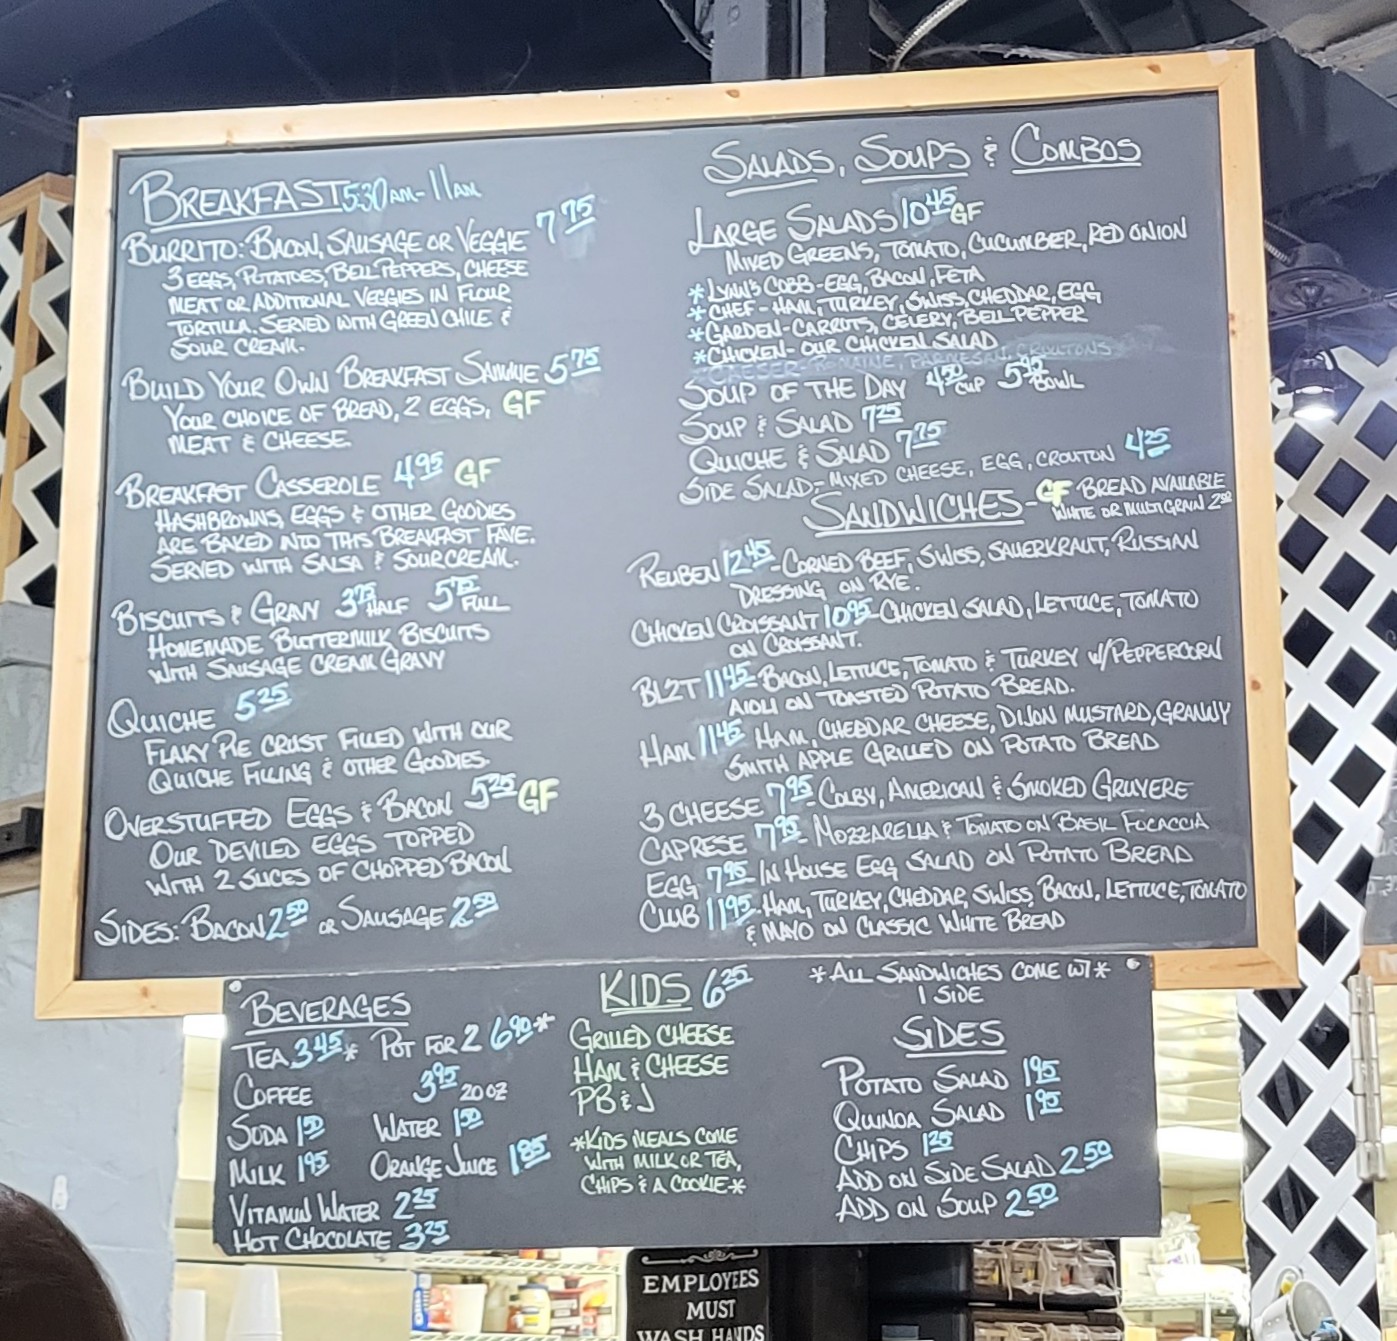 BREAKFAST 5:30AM-11AM
BURRITO: BACON, SAUSAGE OR VEGGIE 7.75
3 EGGS, POTATOES, BELL PEPPERS, CHEESE
MEAT OR ADDITIONAL VEGGIES IN FLOUR
TORTILLA. SERVED WITH GREEN CHILE &
SOUR CREAM.
BUILD YOUR OWN BREAKFAST SAMMIE 5.75
YOUR CHOICE OF BREAD, 2 EGGS, GF
MEAT & CHEESE.
BREAKFAST CASSEROLE 4.95 GF
HASHBROWNS, EGGS & OTHER GOODIES
ARE BAKED INTO THIS BREAKFAST FAVE.
SERVED WITH SALSA & SOUR CREAM.
BISCUITS & GRAVY 3.75 HALF 5.75 FULL
HOMEMADE BUTTERMILK BISCUITS
WITH SAUSAGE CREAM GRAVY
QUICHE 5.25
FLAKY PIE CRUST FILLED WITH OUR
QUICHE FILLING & OTHER GOODIES.
OVERSTUFFED EGGS & BACON 5.25 GF
OUR DEVILED EGGS TOPPED
WITH 2 SLICES OF CHOPPED BACON
SIDES: BACON 2.50 OR SAUSAGE 2.50
SALADS, SOUPS & COMBOS
LARGE SALADS 10.45 GF
MIXED GREENS, TOMATO, CUCUMBER, RED ONION
*LYNN'S COBB - EGG, BACON, FETA
*CHEF - HAM, TURKEY, SWISS, CHEDDAR, EGG
*GARDEN - CARROTS, CELERY, BELL PEPPER
*CHICKEN - OUR CHICKEN SALAD
CAESER - ROMAINE, PARMESAN, CROUTONS
SOUP OF THE DAY 4.50 CUP 5.95 BOWL
SOUP & SALAD 7.25
QUICHE & SALAD 7.75
SIDE SALAD - MIXED CHEESE, EGG, CROUTON 4.25
SANDWICHES - GF BREAD AVAILABLE
WHITE OR MULTIGRAIN 2.00
REUBEN 12.45 - CORNED BEEF, SWISS, SAUERKRAUT, RUSSIAN
DRESSING ON RYE.
CHICKEN CROISSANT 10.95 - CHICKEN SALAD, LETTUCE, TOMATO
ON CROISSANT.
BL2T 11.45 - BACON, LETTUCE, TOMATO & TURKEY W/PEPPERCORN
AIOLI ON TOASTED POTATO BREAD.
HAM 11.45 HAM, CHEDDAR CHEESE, DIJON MUSTARD, GRANNY
SMITH APPLE GRILLED ON POTATO BREAD
3 CHEESE 7.95 - COLBY, AMERICAN & SMOKED GRUYERE
CAPRESE 7.95 - MOZZARELLA & TOMATO ON BASIL FOCACCIA
EGG 7.95 - IN HOUSE EGG SALAD ON POTATO BREAD
CLUB 11.95 - HAM, TURKEY, CHEDDAR, SWISS, BACON, LETTUCE, TOMATO
& MAYO ON CLASSIC WHITE BREAD
BEVERAGES
TEA 3.45* POT FOR 2 6.90*
COFFEE 3.95 20 OZ
SODA 1.50 WATER 1.50
MILK 1.95 ORANGE JUICE 1.85
VITAMIN WATER 2.25
HOT CHOCOLATE 3.25
KIDS 6.25
GRILLED CHEESE
HAM & CHEESE
PB & J
*KIDS MEALS COME
WITH MILK OR TEA,
CHIPS & A COOKIE*
*ALL SANDWICHES COME W/*
1 SIDE
SIDES
POTATO SALAD 1.95
QUINOA SALAD 1.95
CHIPS 1.25
ADD ON SIDE SALAD 2.50
ADD ON SOUP 2.50
EMPLOYEES
MUST
WASH HANDS